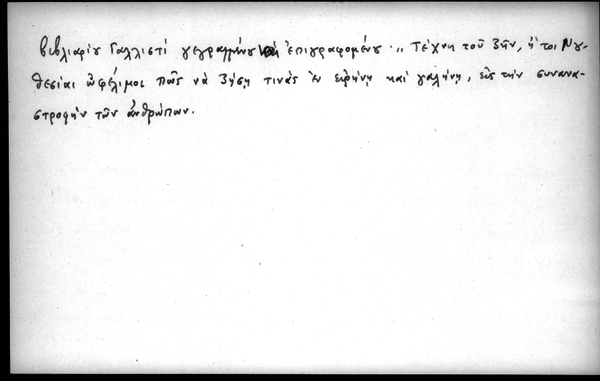 βιβλιαρίου Γαλλιστί γεγραμμένου καὶ ἐπιγραφομένου· „Τέχνη τοῦ ζῆν, ἤτοι Νου-
θεσίαι ὠφέλιμοι πῶς νὰ ζήσῃ τινὰς ἐν εἰρήνῃ καὶ γαλήνῃ, εἰς τὴν συνανα-
στροφὴν τῶν ἀνθρώπων.